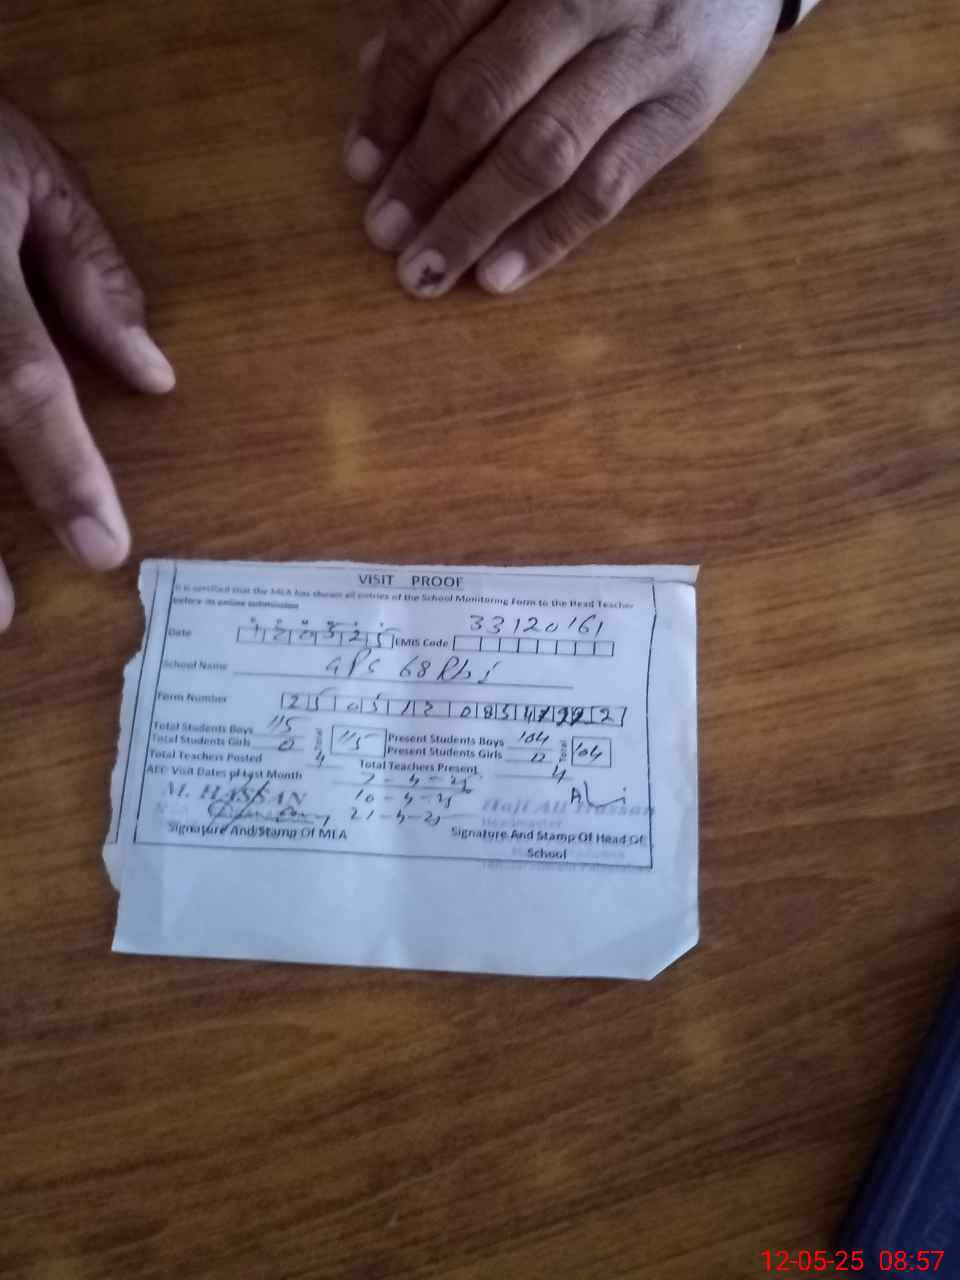 VISIT PROOF
It is certified that the MLA has shown all entries of the School Monitoring Form to the Head Teacher
before its online submission
Date 120525 EMIS Code 33120161
School Name GPS 68 Rbi
Form Number 25 05 12 085
Total Students Boys 115 Total 115 Present Students Boys 104 Total 104
Total Students Girls 0 Present Students Girls
Total Teachers Posted 4 Total Teachers Present 4
AEC Visit Dates of Last Month 7-4-25
M. HASSAN 10-4-25 Ali
21-4-25 Haji Ali Hassan
Headmaster
Signature And Stamp Of MLA Signature And Stamp Of Head Of
School
12-05-25 08:57